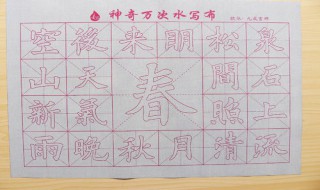 神奇万次水写布
空山新雨
後天氣晚
来秋
春
明月
松間照清
泉石上流